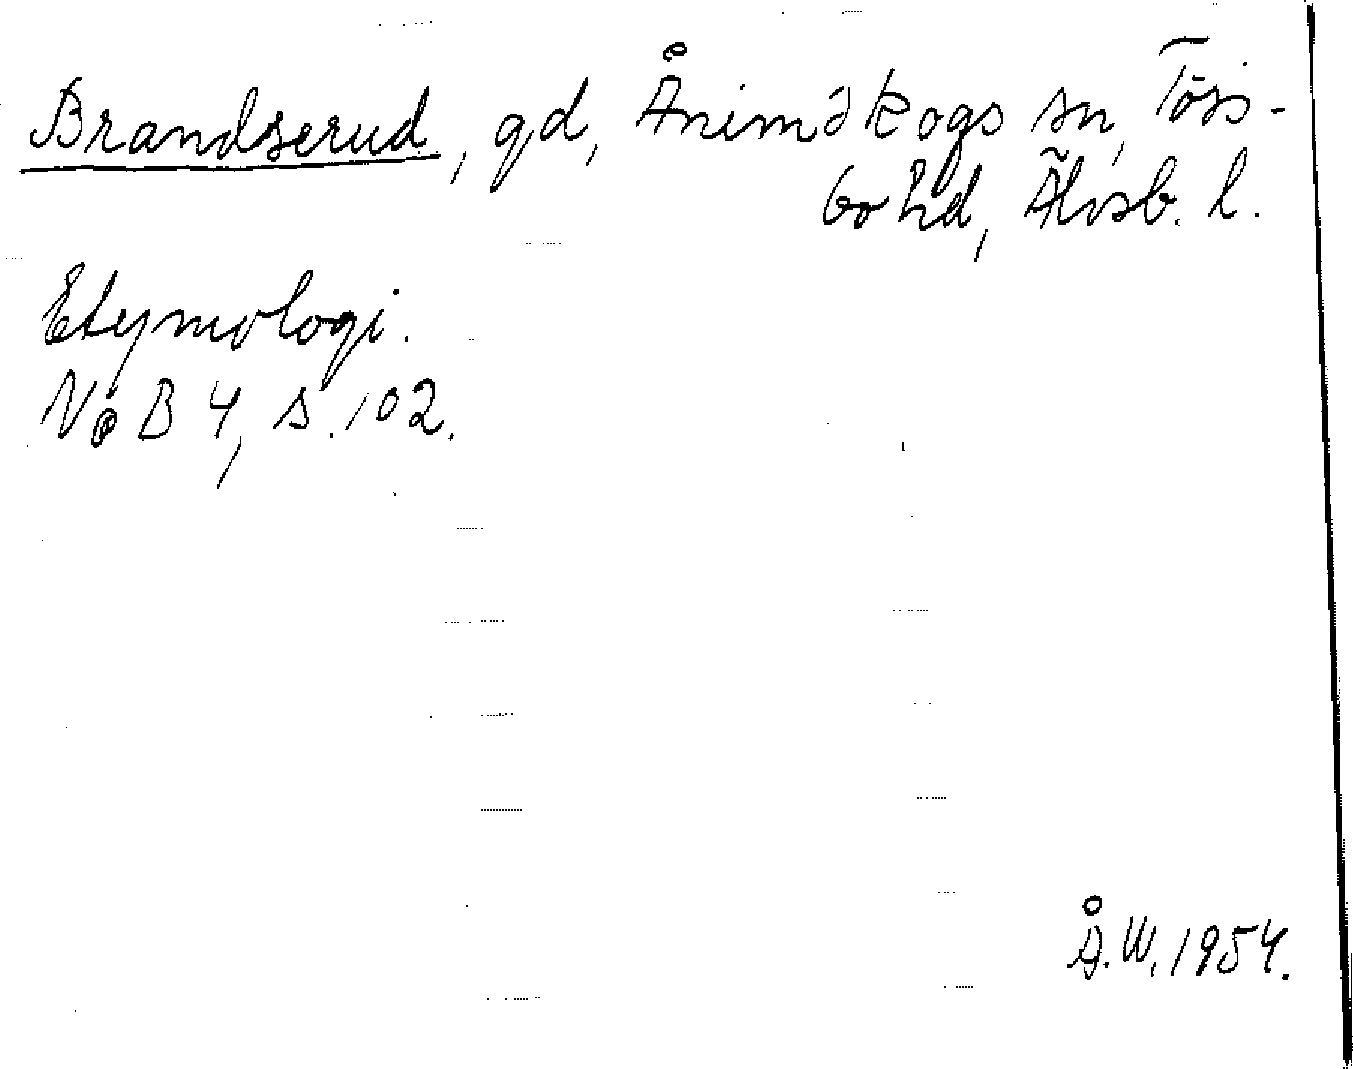 Brandserud, gd, Ånimskogs sn, Töss-
bo hd, Älvsb. l.
Etymologi.
NoB 4, s. 102.
Å.W. 1954.